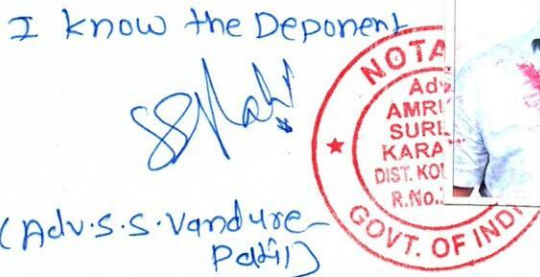 I know the Deponent
(Adv.S.S.Vandure-
Patil)
NOTA
Adv
AMRI
SURE
KARA
DIST. KOL
R.No.
GOVT. OF INDI